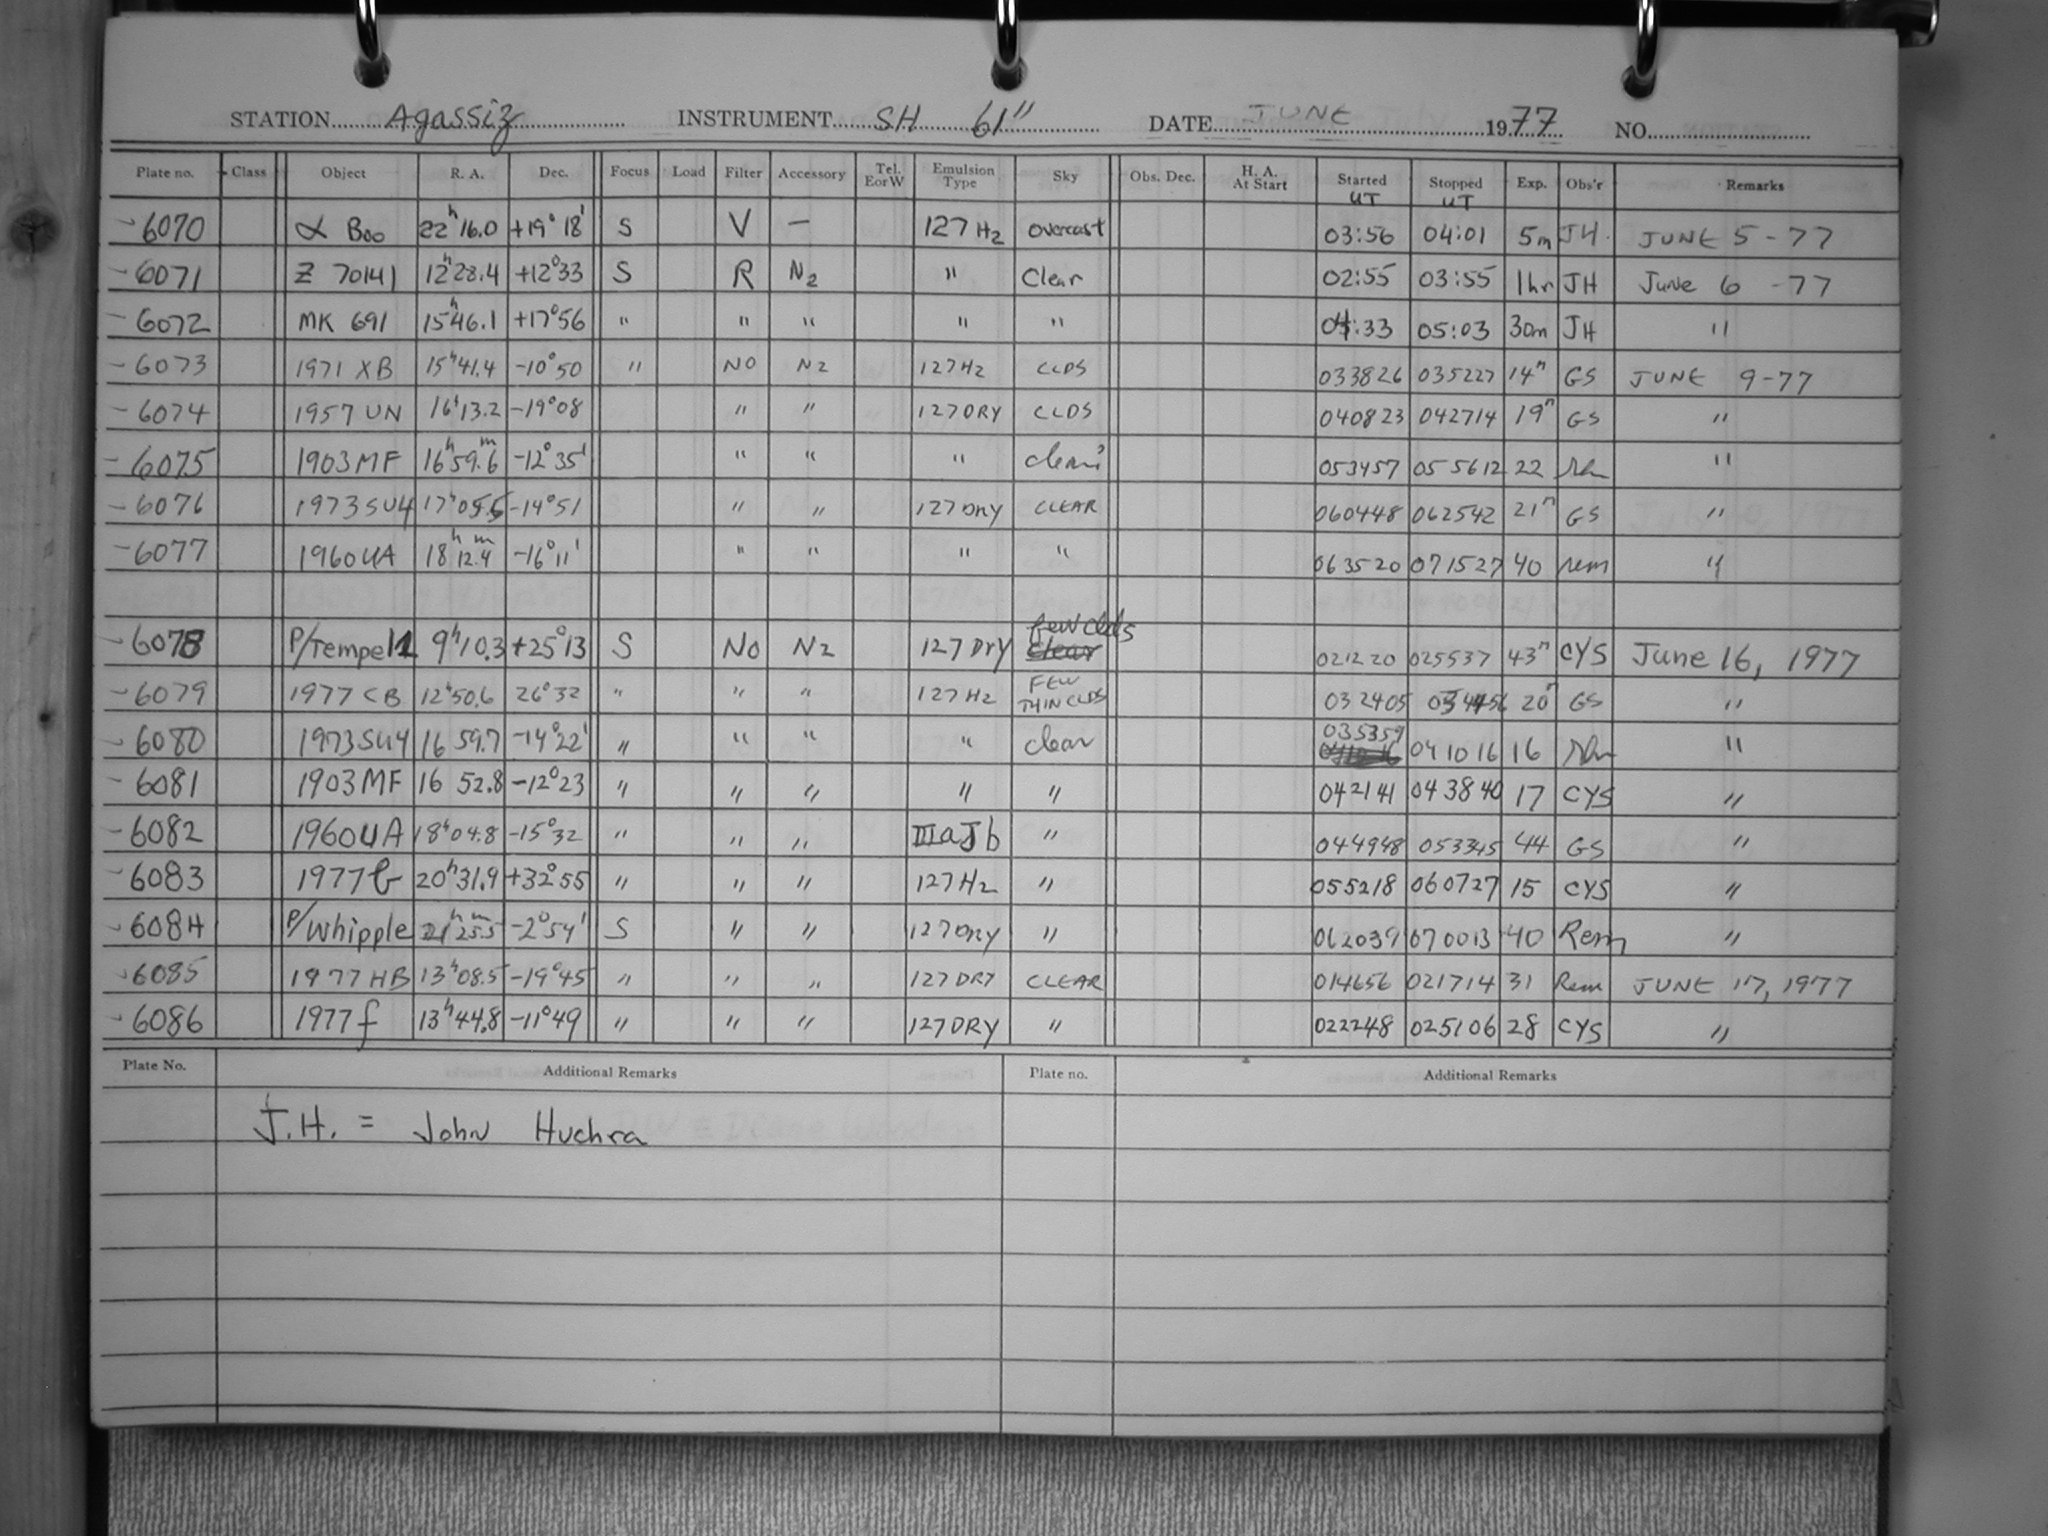 STATION Agassiz INSTRUMENT SH 61" DATE JUNE 1977 NO.
Plate no. Class Object R. A. Dec. Focus Load Filter Accessory Tel. EorW Emulsion Type Sky Obs. Dec. H. A. At Start Started UT Stopped UT Exp. Obs'r Remarks
-6070 α Boo 22ʰ16.0 +19°18' S V - 127 Hz overcast 03:56 04:01 5m JH. JUNE 5-77
-6071 Z 70141 12ʰ28.4 +12°33 S R N2 " Clear 02:55 03:55 1hr JH June 6 -77
-6072 MK 691 15ʰ46.1 +17°56 " " " " " 04:33 05:03 30m JH "
-6073 1971 XB 15ʰ41.4 -10°50 " NO N2 127Hz CLDS 033826 035227 14ᵐ GS JUNE 9-77
-6074 1957 UN 16ʰ13.2 -19°08 " " 127DRY CLDS 040823 042714 19ᵐ GS "
-6075 1903MF 16ʰ59.ᵐ6 -12°35' " " " 053457 055612 22 rem "
-6076 1973SU4 17ʰ05.5 -14°51 " " 127DRY CLEAR 060448 062542 21ᵐ GS "
-6077 1960UA 18ʰ12.ᵐ4 -16°11' " " " " 063520 071527 40 rem "
-6078 P/Tempel 1 9ʰ10.3 +25°13 S NO N2 127 DRY few clds clear 021220 025537 43ᵐ CYS June 16, 1977
-6079 1977 CB 12ʰ50.6 26°32 " " " 127Hz FEW THIN CLDS 032405 20ᵐ GS "
-6080 1973SU4 16 59.7 -14°22' " " " " clear 035359 041016 16 rem "
-6081 1903MF 16 52.8 -12°23 " " " " " 042141 043840 17 CYS "
-6082 1960UA 18ʰ04.8 -15°32 " " " IIIaJb " 044948 053345 44 GS "
-6083 1977 20ʰ31.9 +32°55 " " " 127Hz " 055218 060727 15 CYS "
-6084 P/Whipple 21ʰ25.ᵐ5 -2°54' S " " 127DRY " 062039 070013 40 Rem "
-6085 1977 HB 13ʰ08.5 -19°45 " " " 127 DRY CLEAR 014656 021714 31 Rem JUNE 17, 1977
-6086 1977f 13ʰ44.8 -11°49 " " " 127DRY " 022248 025106 28 CYS "
Plate No. Additional Remarks Plate no. Additional Remarks
J.H. = John Huchra